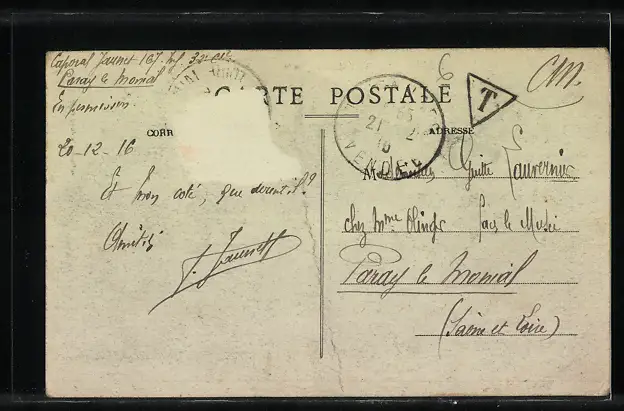 Caporal Jaunet 167. Inf 32e Cie
Paray le Monial
En permission
CARTE POSTALE
T
CM.
CORR
ADRESSE
21 2
VENDÉE
20-12-16
Et mon coté, que devient-il?
Amitiés
J. Jaunet
M Guitte
chez Mme face le Musée
Paray le Monial
(Saône et Loire)